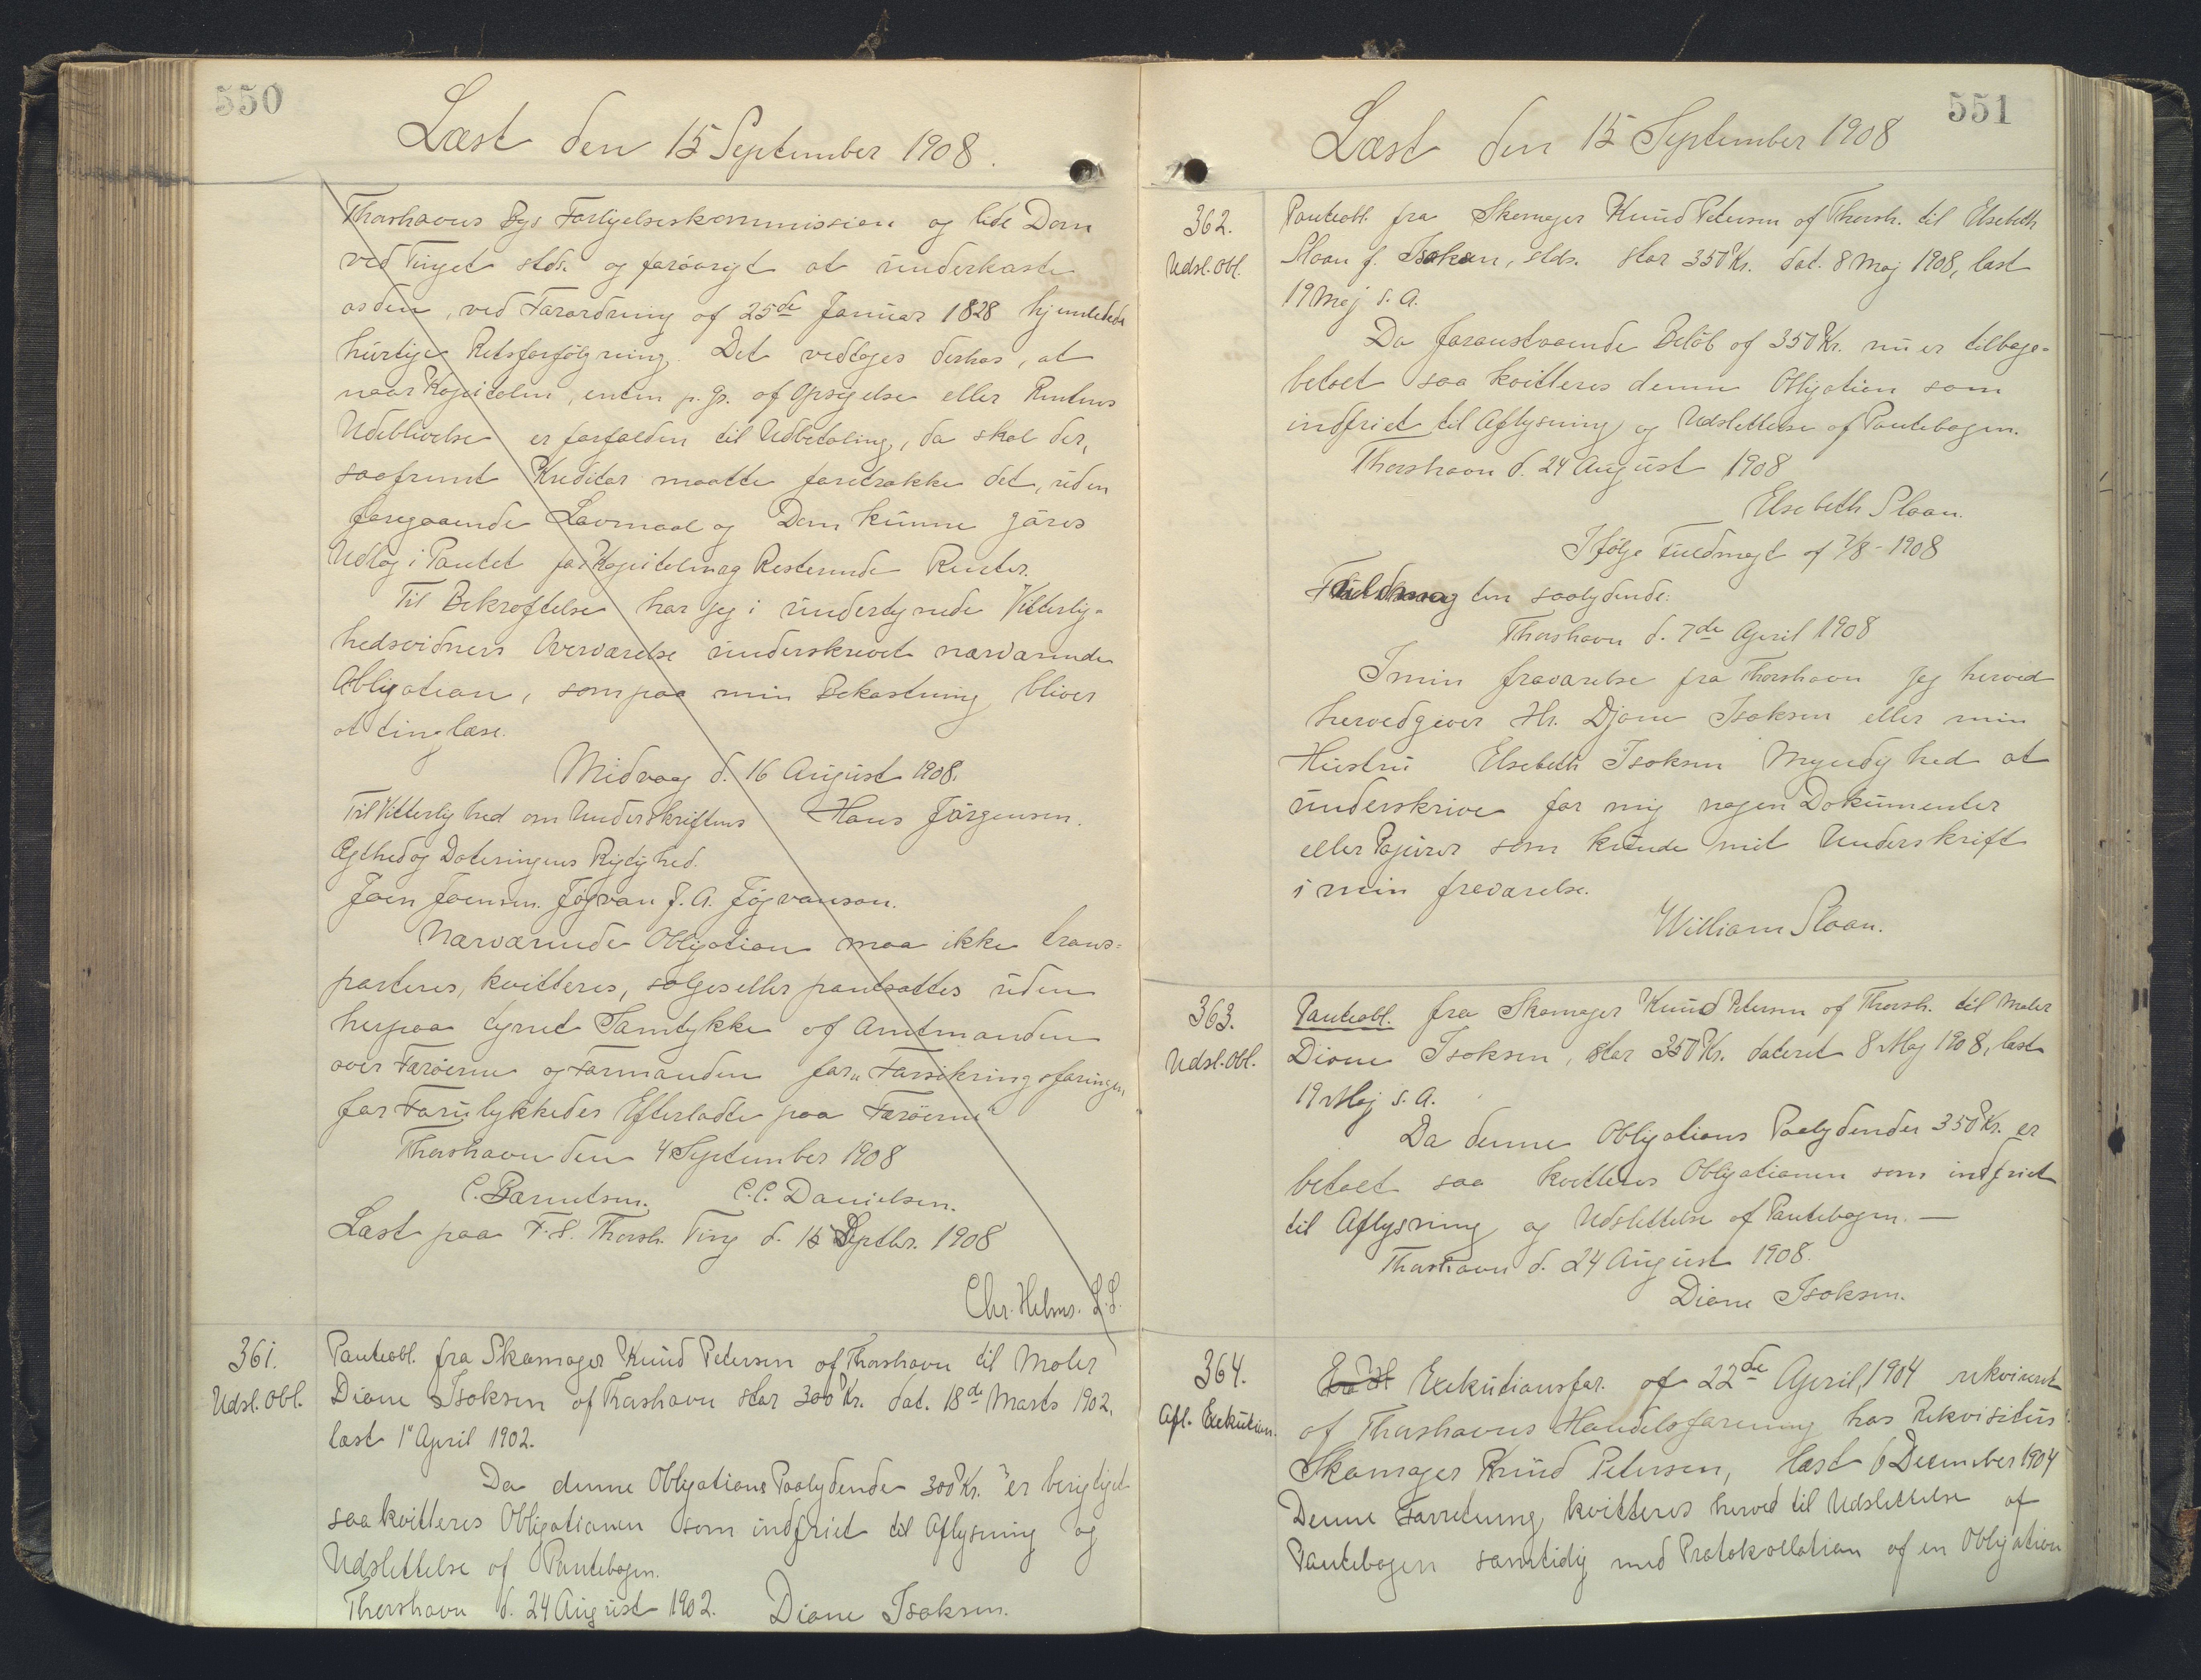 550
Læst den 15 September 1908.
Thorshavns Bys Forligelseskommission og lide Dom
ved Tinget sldst. og forøvrigt at underkaste
os den, ved Forordning af 25de Januar 1828 hjemlede
hurtige Retsforfølgning. Det vedtages derhos, at
naar Kapitalen, enten p. Gr. af Opsigelse eller Rentens
Udeblivelse er forfalden til Udbetaling, da skal der,
saafremt Kreditor maatte foretrække det, uden
foregaaende Lovmaal og Dom kunne gøres
Udlæg i Pantet for Kapitalen og Resterende Renter.
Til Bekræftelse har jeg i undertegnede Vitterlig-
hedsvidners Overværelse underskrevet nærværende
Obligation, som paa min Bekostning bliver
at tinglæse.
Midvaag d. 16 August 1908.
Til Vitterlighed om Underskriftens Hans Jørgensen.
Ægthed og Dateringens Rigtighed.
Joen Joensen. Jógvan J. A. Jógvanson.
Nærværende Obligation maa ikke trans-
porteres, kvitteres, sælges eller pantsættes uden
herpaa tegnet Samtykke af Amtmanden
over Færøerne og Formanden for „Forsikringsforingen
for Forulykkedes Efterladte paa Færøerne“
Thorshavn den 4 September 1908
C. Bærentsen. C.C. Danielsen.
Læst paa F.S. Thorsh. Ting d. 15 Septbr. 1908
Chr. Helms. L.S.
361. Panteobl. fra Skomager Knud Petersen af Thorshavn til Maler
Udsl. Obl. Dione Isaksen af Thorshavn stor 300 Kr. dat. 18de Marts 1902,
læst 1' April 1902.
Da denne Obligations Paalydende 300 Kr. er berigtiget
saa kvitteres Obligationen som indfriet til Aflysning og
Udslettelse af Pantebogen.
Thorshavn d. 24 August 1902. Dione Isaksen.
551
Læst den 15 September 1908
362. Panteobl. fra Skomager Knud Petersen af Thorsh. til Elsebeth
Udsl. Obl. Sloan f. Isaksen, slds. stor 350 Kr. dat. 8 Maj 1908, læst
19 Maj s. A.
Da foranstaaende Beløb af 350 Kr. nu er tilbage-
betalt saa kvitteres denne Obligation som
indfriet til Aflysning og Udslettelse af Pantebogen.
Thorshavn d. 24 August 1908
Elsebeth Sloan.
Ifølge Fuldmagt af 7/8 - 1908
Fuldmagten saalydende:
Thorshavn d. 7de April 1908
I min fraværelse fra Thorshavn jeg herved
hervedgiver Hr. Djone Isaksen eller min
Hustru Elsebeth Isaksen Myndighed at
underskrive for mig nogen Dokumenter
eller Papirer som krænde mit Underskrift
i min fraværelse.
William Sloan.
363. Panteobl. fra Skomager Knud Petersen af Thorsh. til Maler
Udsl. Obl. Dione Isaksen, stor 350 Kr. dateret 8 Maj 1908, læst
19 Maj s. A.
Da denne Obligations Paalydender 350 Kr. er
betalt saa kvitteres Obligationen som indfriet
til Aflysning og Udslettelse af Pantebogen. —
Thorshavn d. 24 August 1908.
Dione Isaksen.
364. Exekutionsfor. af 22de April, 1904 rekvireret
Afl. Exekution. af Thorshavns Handelsforening hos Rekvisitus
Skomager Knud Petersen, læst 6 December 1904
Denne Forretning kvitteres herved til Udslettelse af
Pantebogen samtidig med Protokollation af en Obligation